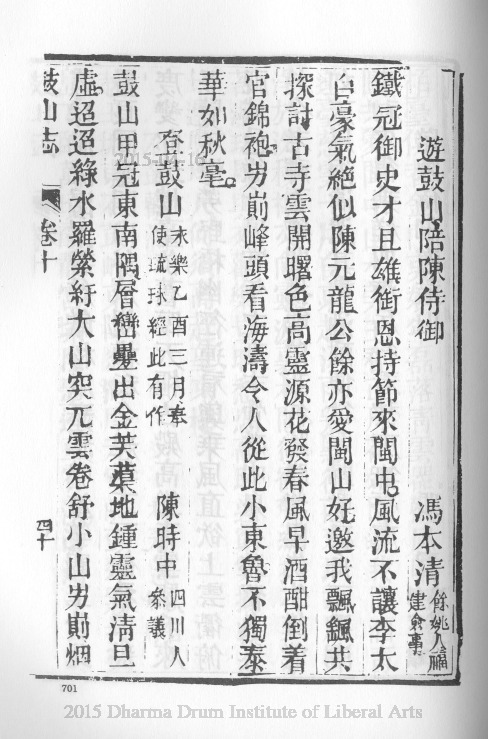 遊鼓山陪陳侍御 馮本清 餘姚人福建僉事
鐵冠御史才且雄銜恩持節來閩中風流不讓李太
白豪氣絕似陳元龍公餘亦愛閩山好邀我飄飄共
探討古寺雲開曙色高靈源花發春風早酒酣倒着
官錦袍屴崱峰頭看海濤令人從此小東魯不獨泰
華如秋毫
登鼓山 永樂乙酉三月奉使琉球經此有作 陳時中 四川人參議
鼓山甲冠東南隅層巒疊出金芙蕖地鍾靈氣清且
虛迢迢綠水羅縈紆大山突兀雲卷舒小山屴崱烟
鼓山志 卷十 四十
701
2015 Dharma Drum Institute of Liberal Arts